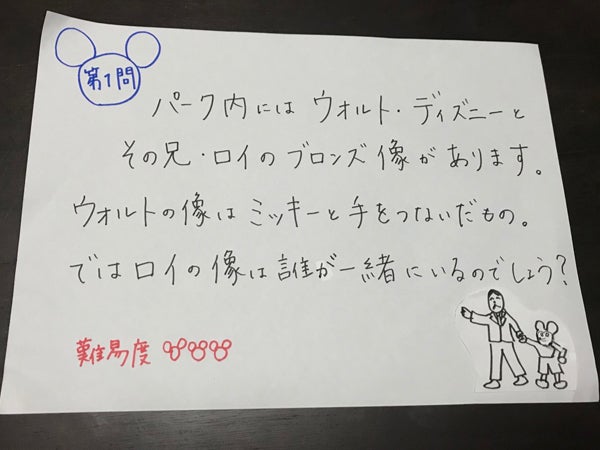 第1問
パーク内にはウォルト・ディズニーと
その兄・ロイのブロンズ像があります。
ウォルトの像はミッキーと手をつないだもの。
ではロイの像は誰が一緒にいるのでしょう?
難易度